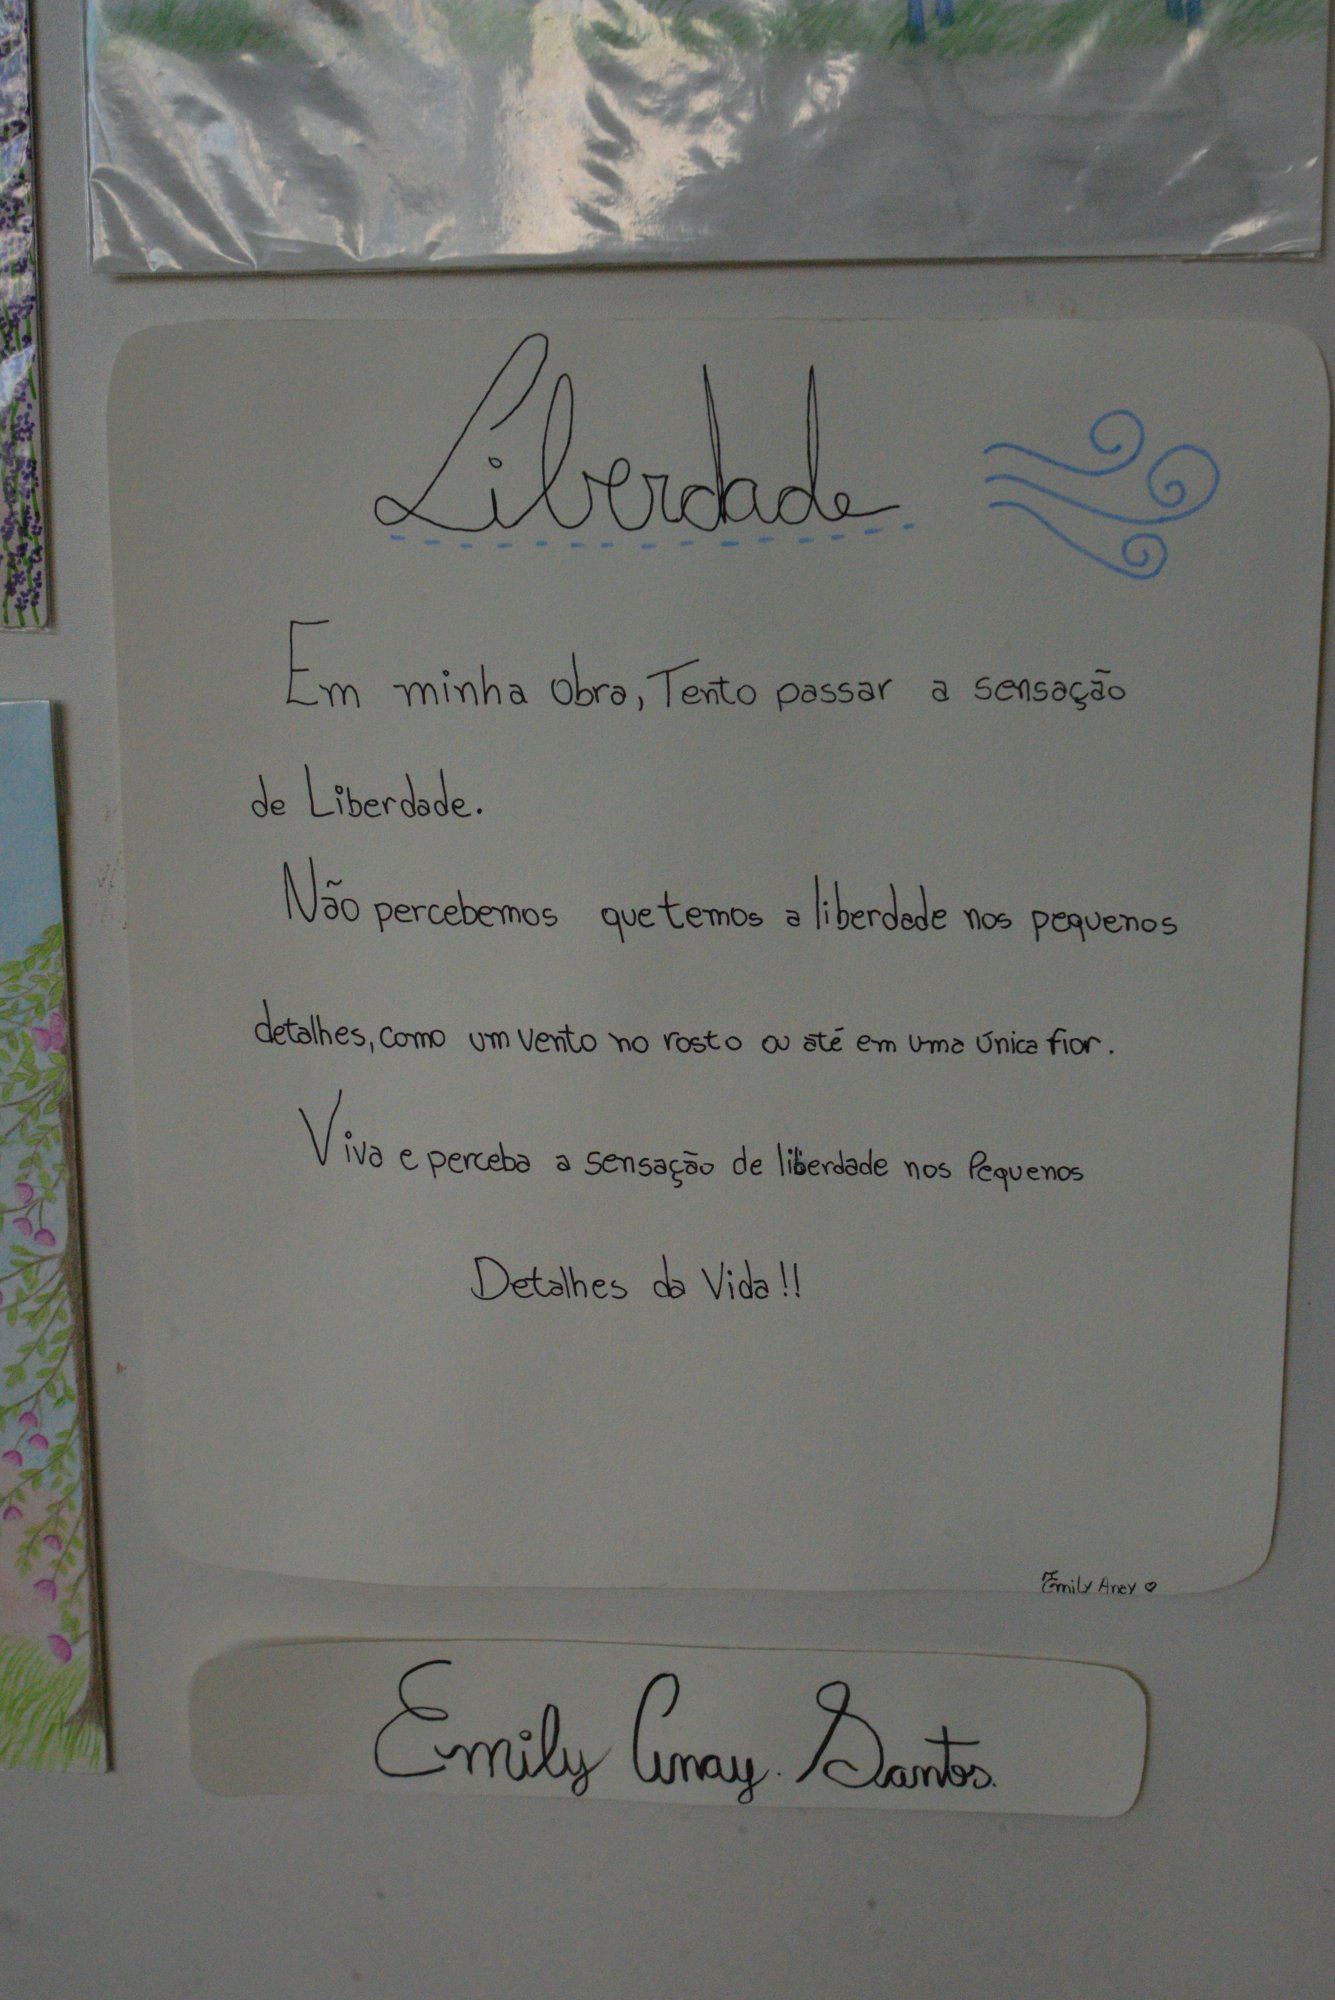 Liberdade
Em minha obra, Tento passar a sensação
de Liberdade.
Não percebemos que temos a liberdade nos pequenos
detalhes, como um vento no rosto ou até em uma única flor.
Viva e perceba a sensação de liberdade nos Pequenos
Detalhes da Vida!!
Emily Aney ♡
Emily Anay. Santos.